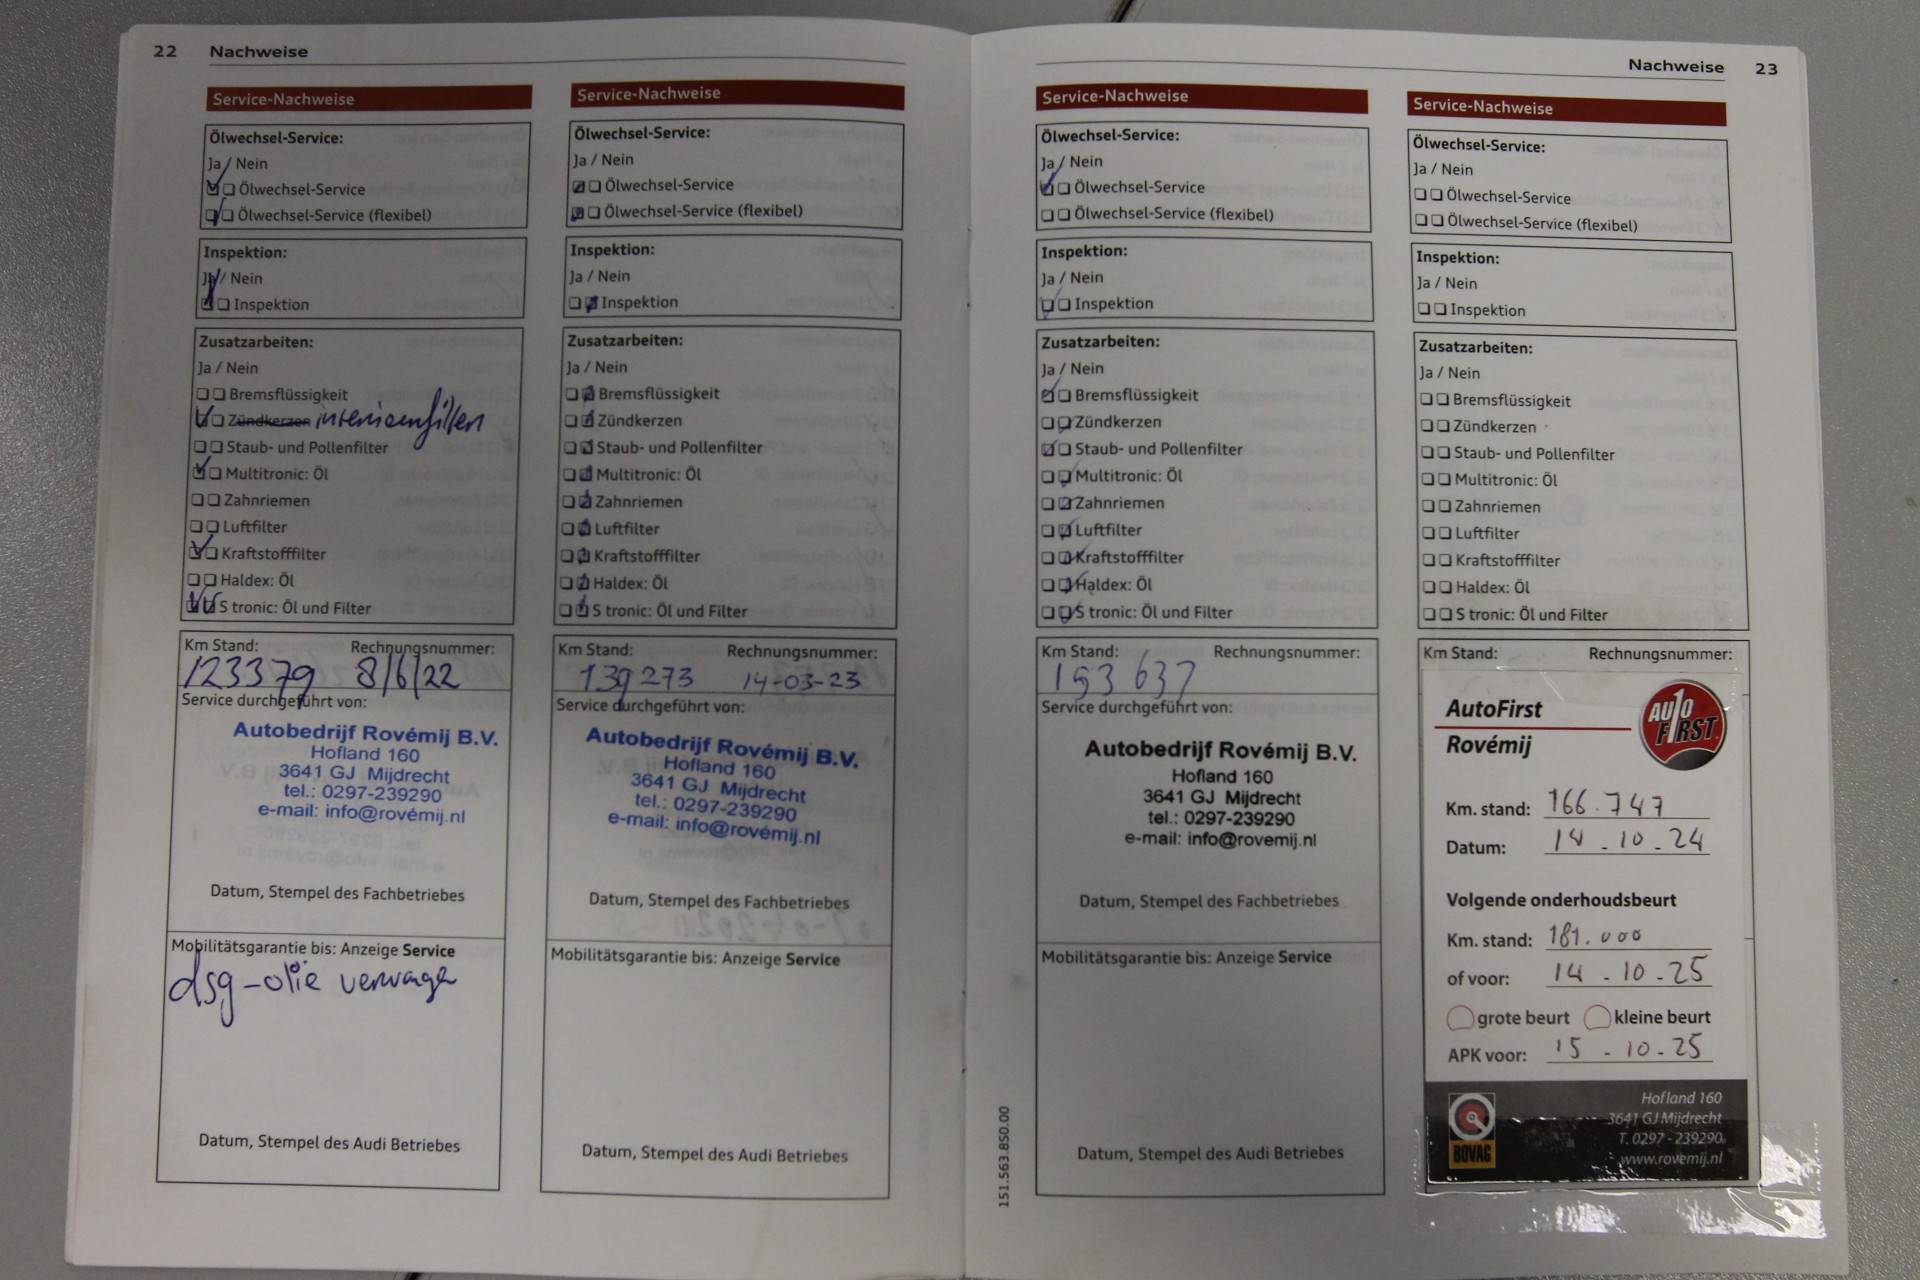 22 Nachweise
Service-Nachweise
Ölwechsel-Service:
Ja / Nein
Ölwechsel-Service
Ölwechsel-Service (flexibel)
Inspektion:
Ja / Nein
Inspektion
Zusatzarbeiten:
Ja / Nein
Bremsflüssigkeit
Zündkerzen
Staub- und Pollenfilter
Multitronic: Öl
Zahnriemen
Luftfilter
Kraftstofffilter
Haldex: Öl
S tronic: Öl und Filter
Km Stand: Rechnungsnummer:
123379 8/6/22
Service durchgeführt von:
Autobedrijf Rovémij B.V.
Hofland 160
3641 GJ Mijdrecht
tel.: 0297-239290
e-mail: info@rovémij.nl
Datum, Stempel des Fachbetriebes
Mobilitätsgarantie bis: Anzeige Service
dsg-olie
Datum, Stempel des Audi Betriebes
Service-Nachweise
Ölwechsel-Service:
Ja / Nein
Ölwechsel-Service
Ölwechsel-Service (flexibel)
Inspektion:
Ja / Nein
Inspektion
Zusatzarbeiten:
Ja / Nein
Bremsflüssigkeit
Zündkerzen
Staub- und Pollenfilter
Multitronic: Öl
Zahnriemen
Luftfilter
Kraftstofffilter
Haldex: Öl
S tronic: Öl und Filter
Km Stand: Rechnungsnummer:
139273 14-03-23
Service durchgeführt von:
Autobedrijf Rovémij B.V.
Hofland 160
3641 GJ Mijdrecht
tel.: 0297-239290
e-mail: info@rovémij.nl
Datum, Stempel des Fachbetriebes
Mobilitätsgarantie bis: Anzeige Service
Datum, Stempel des Audi Betriebes
Nachweise 23
Service-Nachweise
Ölwechsel-Service:
Ja / Nein
Ölwechsel-Service
Ölwechsel-Service (flexibel)
Inspektion:
Ja / Nein
Inspektion
Zusatzarbeiten:
Ja / Nein
Bremsflüssigkeit
Zündkerzen
Staub- und Pollenfilter
Multitronic: Öl
Zahnriemen
Luftfilter
Kraftstofffilter
Haldex: Öl
S tronic: Öl und Filter
Km Stand: Rechnungsnummer:
153 637
Service durchgeführt von:
Autobedrijf Rovémij B.V.
Hofland 160
3641 GJ Mijdrecht
tel.: 0297-239290
e-mail: info@rovemij.nl
Datum, Stempel des Fachbetriebes
Mobilitätsgarantie bis: Anzeige Service
Datum, Stempel des Audi Betriebes
151.563.850.00
Service-Nachweise
Ölwechsel-Service:
Ja / Nein
Ölwechsel-Service
Ölwechsel-Service (flexibel)
Inspektion:
Ja / Nein
Inspektion
Zusatzarbeiten:
Ja / Nein
Bremsflüssigkeit
Zündkerzen
Staub- und Pollenfilter
Multitronic: Öl
Zahnriemen
Luftfilter
Kraftstofffilter
Haldex: Öl
S tronic: Öl und Filter
Km Stand: Rechnungsnummer:
AutoFirst
Rovémij
AUTO
F1RST
Km. stand: 166.747
Datum: 14-10-24
Volgende onderhoudsbeurt
Km. stand: 181.000
of voor: 14-10-25
grote beurt kleine beurt
APK voor: 15-10-25
BOVAG
Hofland 160
3641 GJ Mijdrecht
T. 0297 - 239290
www.rovemij.nl